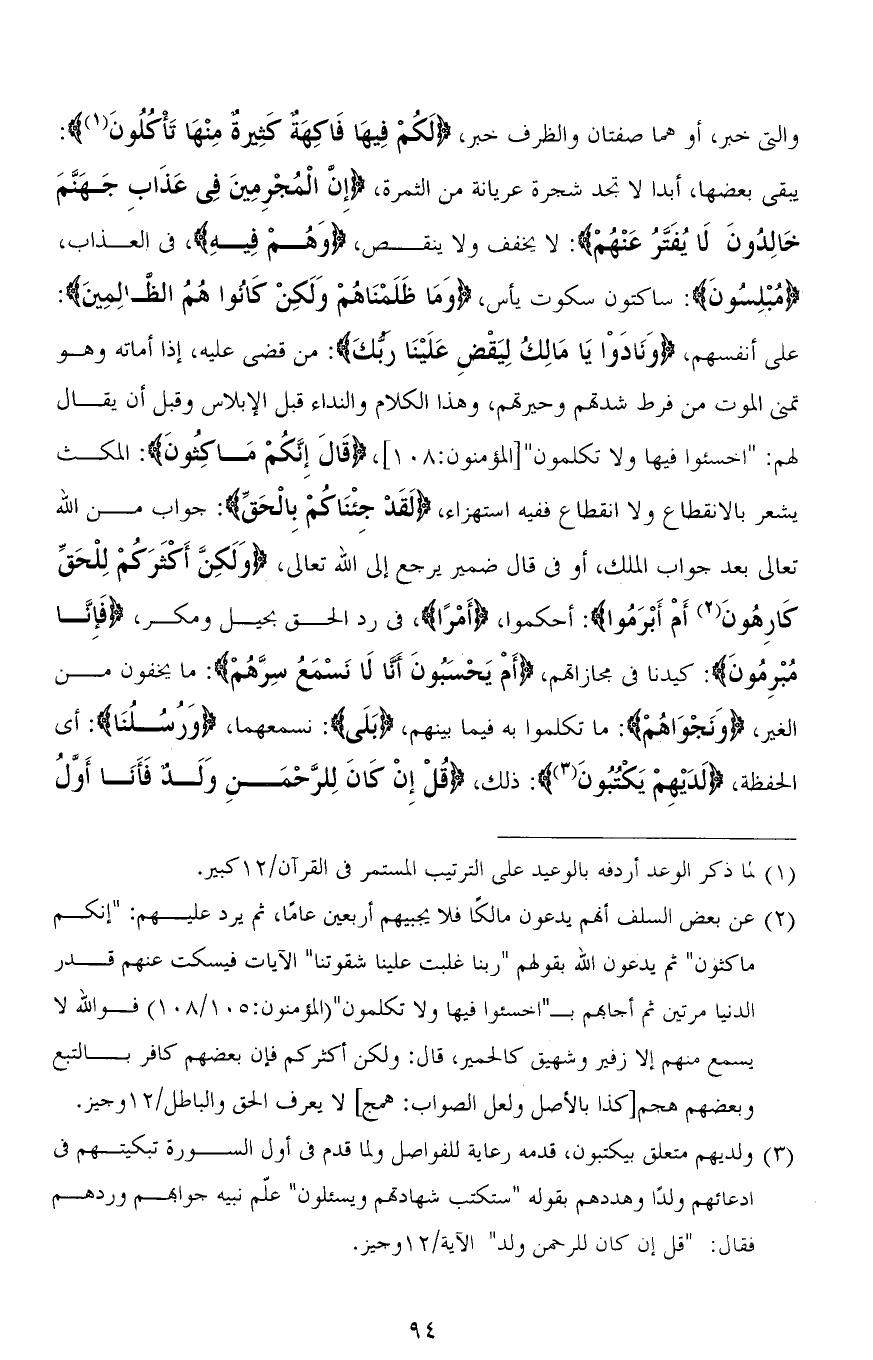 والتى خبر، أو هما صفتان والظرف خبر، ﴿لَكُمْ فِيهَا فَاكِهَةٌ كَثِيرةٌ مِنْهَا تَأْكُلُونَ(١)﴾:
يبقى بعضها، أبدا لا تجد شجرة عريانة من الثمرة، ﴿إِنَّ الْمُجْرِمِينَ فِى عَذَابِ جَهَنَّمَ
خَالِدُونَ لَا يُفَتَّرُ عَنْهُمْ﴾: لا يخفف ولا ينقص، ﴿وَهُمْ فِيهِ﴾، فى العذاب،
﴿مُبْلِسُونَ﴾: ساكتون سكوت يأس، ﴿وَمَا ظَلَمْنَاهُمْ وَلَكِنْ كَانُوا هُمُ الظَّالِمِينَ﴾:
على أنفسهم، ﴿وَنَادَوْا يَا مَالِكُ لِيَقْضِ عَلَيْنَا رَبُّكَ﴾: من قضى عليه، إذا أماته وهو
تمنى الموت من فرط شدتهم وحيرتهم، وهذا الكلام والنداء قبل الإبلاس وقبل أن يقال
لهم: "اخسئوا فيها ولا تكلمون"[المؤمنون:١٠٨]، ﴿قَالَ إِنَّكُمْ مَاكِثُونَ﴾: المكث
يشعر بالانقطاع ولا انقطاع ففيه استهزاء، ﴿لَقَدْ جِئْنَاكُمْ بِالْحَقِّ﴾: جواب من الله
تعالى بعد جواب الملك، أو فى قال ضمير يرجع إلى الله تعالى، ﴿وَلَكِنَّ أَكْثَرَكُمْ لِلْحَقِّ
كَارِهُونَ(٢) أَمْ أَبْرَمُوا﴾: أحكموا، ﴿أَمْرًا﴾، فى رد الحق بحيل ومكر، ﴿فَإِنَّا
مُبْرِمُونَ﴾: كيدنا فى مجازاتهم، ﴿أَمْ يَحْسَبُونَ أَنَّا لَا نَسْمَعُ سِرَّهُمْ﴾: ما يخفون من
الغير، ﴿وَنَجْوَاهُمْ﴾: ما تكلموا به فيما بينهم، ﴿بَلَى﴾: نسمعهما، ﴿وَرُسُلُنَا﴾: أى
الحفظة، ﴿لَدَيْهِمْ يَكْتُبُونَ(٣)﴾: ذلك، ﴿قُلْ إِنْ كَانَ لِلرَّحْمَنِ وَلَدٌ فَأَنَا أَوَّلُ
(١) لما ذكر الوعد أردفه بالوعيد على الترتيب المستمر فى القرآن/١٢كبير.
(٢) عن بعض السلف أنهم يدعون مالكًا فلا يجيبهم أربعين عامًا، ثم يرد عليهم: "إنكم
ماكثون" ثم يدعون الله بقولهم "ربنا غلبت علينا شقوتنا" الآيات فيسكت عنهم قدر
الدنيا مرتين ثم أجابهم بـ"اخسئوا فيها ولا تكلمون"(المؤمنون:١٠٨/١٠٥) فوالله لا
يسمع منهم إلا زفير وشهيق كالحمير، قال: ولكن أكثركم فإن بعضهم كافر بالتبع
وبعضهم هجم[كذا بالأصل ولعل الصواب: همج] لا يعرف الحق والباطل/١٢وجيز.
(٣) ولديهم متعلق بيكتبون، قدمه رعاية للفواصل ولما قدم فى أول السورة تبكيتهم فى
ادعائهم ولدًا وهددهم بقوله "ستكتب شهادتهم ويسئلون" علّم نبيه جوابهم وردهم
فقال: "قل إن كان للرحمن ولد" الآية/١٢وجيز.
٩٤